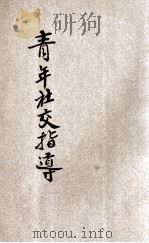 青年社交指導
www.mtoou.info